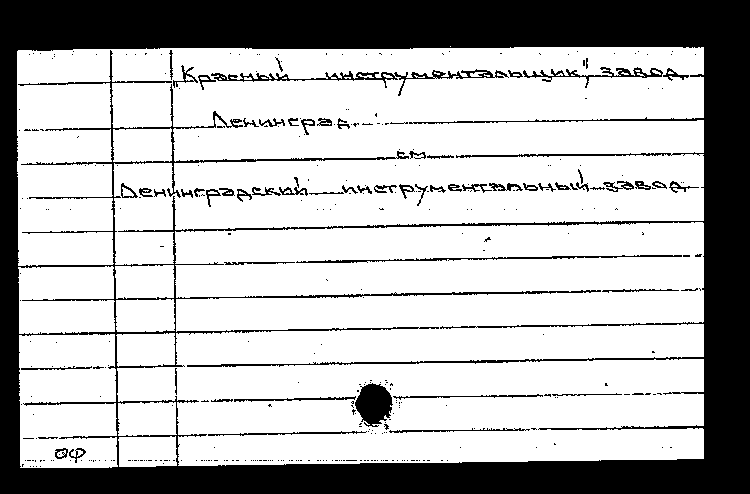 „Красный инструментальщик", завод.
Ленинград.
см.
Ленинградский инструментальный завод.
ОФ